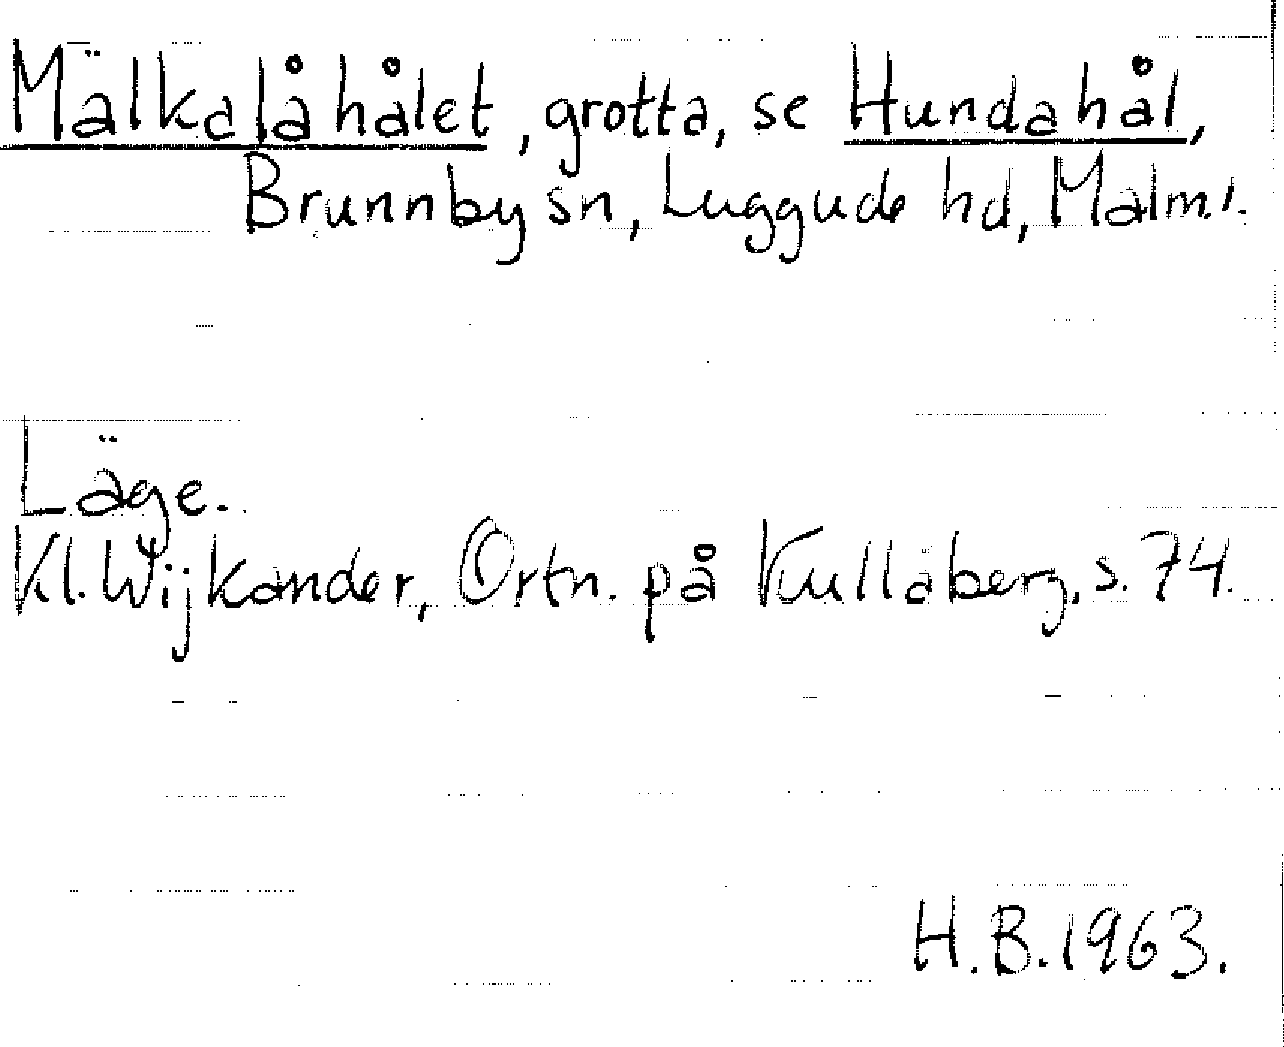 Mälkalåhålet, grotta, se Hundahål,
Brunnby sn, Luggude hd, Malm.
Läge.
Kl. Wijkander, Ortn. på Kullaberg, s. 74.
H.B. 1963.